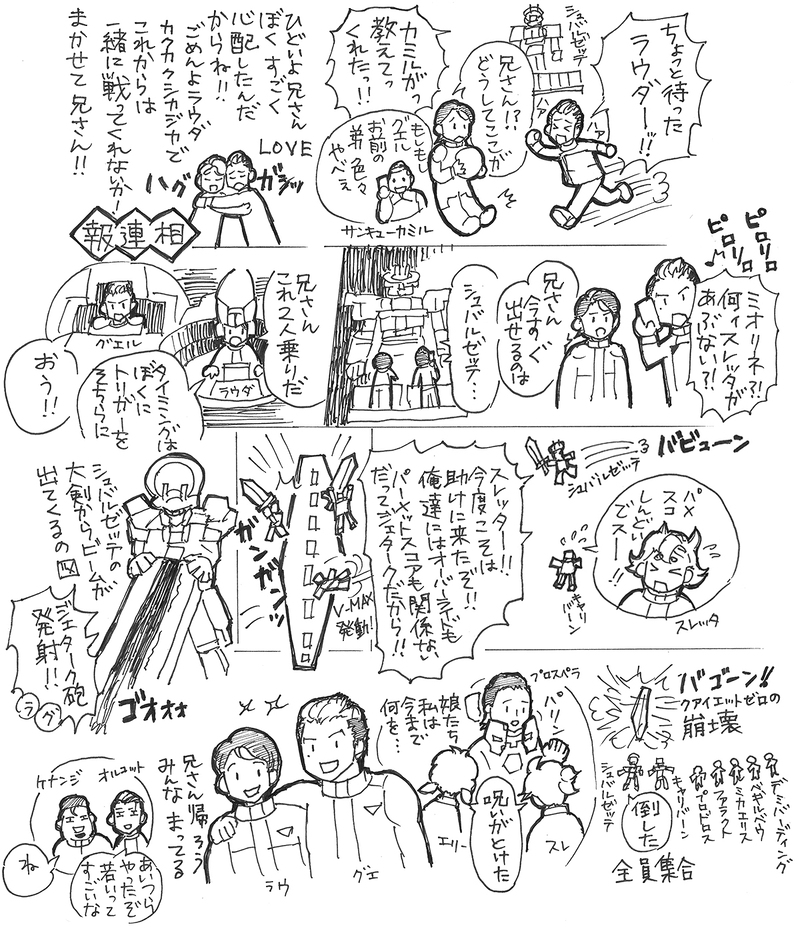 ちょっと待った
ラウダー!!
シュバルゼッテ
ハァ
ハァ
兄さん!?
どうしてここが
カミルがっ
教えてっ
くれたっ!!
もしもし
グエル
お前の
弟、色々
やべぇ
サンキューカミル
ひどいよ兄さん
ぼくすごく
心配したんだ
からね!!
ごめんよラウダ
カクカクシカジカで
これからは
一緒に戦ってくれないか!
まかせて兄さん!!
LOVE
ハグ
ガシッ
報連相
ピロリロ
ピロリロ♪
ミオリネ?!
何ィスレッタが
あぶない?!
兄さん
今すぐ
出せるのは
シュバルゼッテ…
兄さん
これ2人乗りだ
ラウダ
タイミングは
ぼくに
トリガーを
そちらに
グエル
おう!!
バビューン
シュバルゼッテ
パメ
スコ
しんどい
でスー!!
スレッタ
キャリバーン
スレッター!!
今度こそは
助けに来たぞ!!
俺達にはオーバーライドも
パーメットスコアも関係ない
だってジェタークだから!!
ガンガンッ
V-MAX
発動!
シュバルゼッテの
大剣からビームが
出てくるの図
ジェターク砲
発射!!
ラ
グ
ゴオオォ
バゴーン!!
クァイエットゼロの
崩壊
デミバーディング
ベギルペウ
ミカエリス
ファラクト
プロドロス
キャリバーン
シュバルゼッテ
倒した
全員集合
プロスペラ
パリン
娘たち
私は
今まで
何を…
呪いがとけた
エリー
スレ
兄さん帰ろう
みんなまってる
ラウ
グエ
オルコット
ケナンジ
あいつら
やったぞ
若いって
すごいな
ね